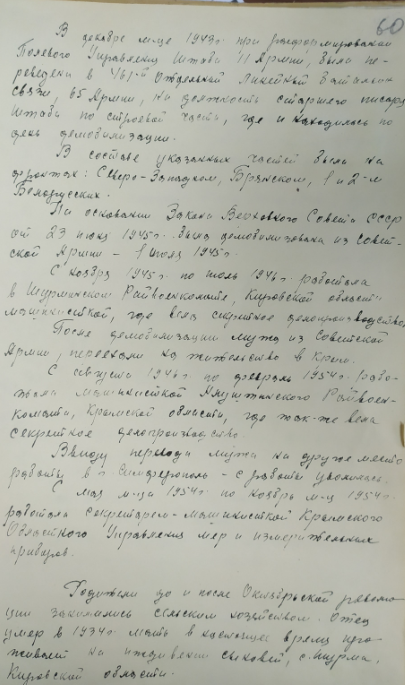 60
В декабре м-це 1943 г. при расформировании
Полевого Управления Штаба 11 Армии, была пе-
реведена в 461-й Отдельный Линейный Батальон
связи, 65 Армии, на должность старшего писаря
штаба по строевой части, где и находилась по
день демобилизации.
В составе указанных частей была на
фронтах: Северо-Западном, Брянском, 1 и 2-м
Белорусских.
На основании Закона Верховного Совета СССР
от 23 июня 1945 г. была демобилизована из Совет-
ской Армии - июля 1945 г.
С ноября 1945 г. по июль 1946 г. работала
в Шурминском Райвоенкомате, Кировской области
машинисткой, где вела секретное делопроизводство.
После демобилизации мужа из Советской
Армии, переехали на жительство в Крым.
С августа 1946 г. по февраль 1954 г. рабо-
тала машинисткой Алуштинского Райвоен-
комата, Крымской области, где так-же вела
секретное делопроизводство.
Ввиду перевода мужа на другое место
работы в г. Симферополь - с работы уволилась.
С мая м-ца 1954 г. по ноябрь м-ц 1954 г.
работала секретарем-машинисткой Крымского
Областного Управления мер и измерительных
приборов.
Родители до и после Октябрьской револю-
ции занимались сельским хозяйством. Отец
умер в 1934 г. мать в настоящее время про-
живает на иждивении сыновей, с. Шурма,
Кировской области.